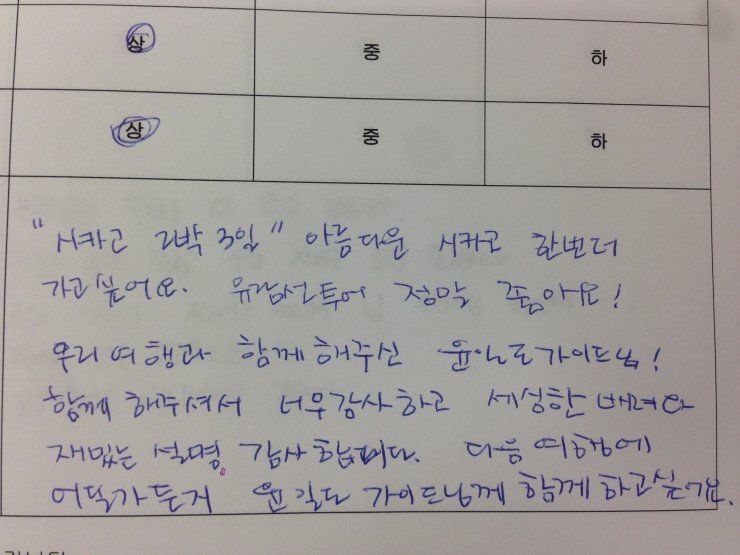 상 중 하
상 중 하
"시카고 2박 3일" 아름다운 시카고 한번더
가고싶어요. 유람선투어 정말 좋아요!
우리여행과 함께해주신 가이드님!
함께 해주셔서 너무감사하고 세심한 배려와
재밌는 설명 감사합니다. 다음 여행에
어딜가든지 가이드님께 함께 하고싶어요.